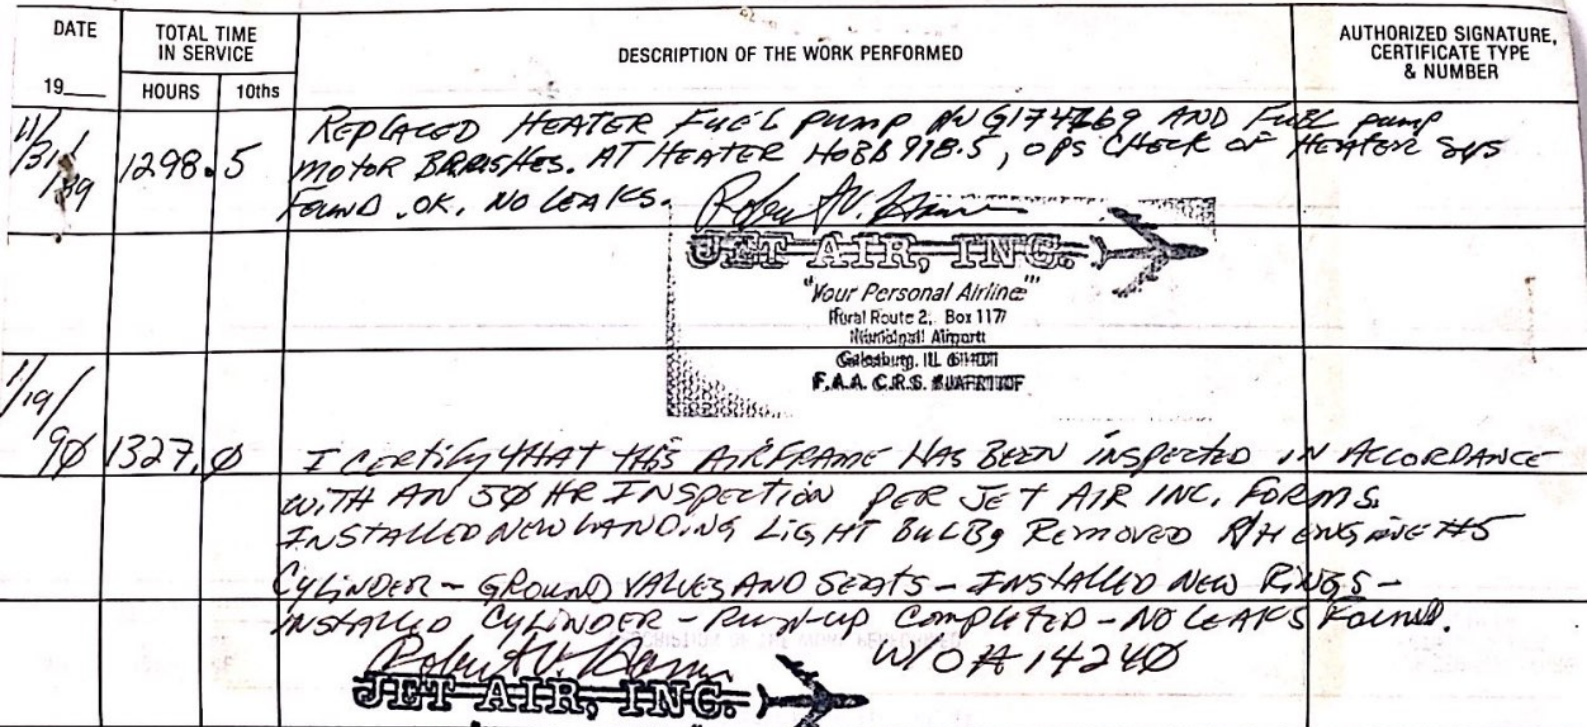 DATE
TOTAL TIME
IN SERVICE
DESCRIPTION OF THE WORK PERFORMED
AUTHORIZED SIGNATURE,
CERTIFICATE TYPE
& NUMBER
19
HOURS
10ths
11/31/89
1298.5
REPLACED HEATER FUEL PUMP AND FUEL PUMP
MOTOR BRUSHES. AT HEATER HOBB 918.5, OPS CHECK OF HEATER SYS
FOUND OK. NO LEAKS.
JET AIR, INC.
"Your Personal Airline"
Rural Route 2, Box 117
Municipal Airport
Galesburg, IL
F.A.A. C.R.S.
1/19/90
1327.0
I CERTIFY THAT THIS AIRFRAME HAS BEEN INSPECTED IN ACCORDANCE
WITH AN 50 HR INSPECTION PER JET AIR INC. FORMS.
INSTALLED NEW LANDING LIGHT BULB, REMOVED R/H ENGINE #5
CYLINDER - GROUND VALVES AND SEATS - INSTALLED NEW RINGS -
INSTALLED CYLINDER - RUN-UP COMPLETED - NO LEAKS FOUND.
W/O # 14240
JET AIR, INC.